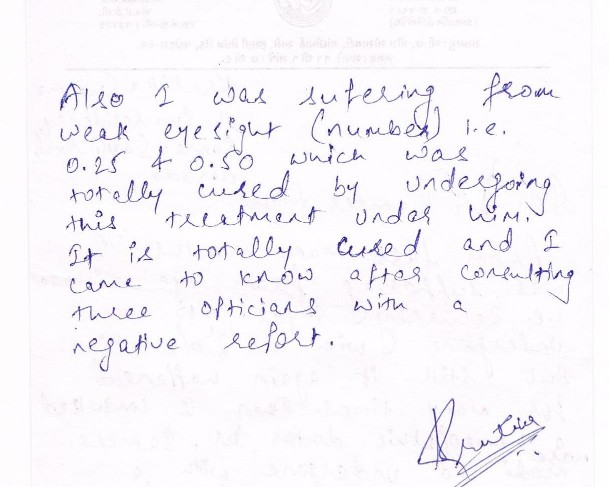 Also I was sufering from
weak eyesight (number) i.e.
0.25 & 0.50 which was
totally cured by undergoing
this treatment under him.
It is totally cured and I
came to know after consulting
three opticians with a
negative report.